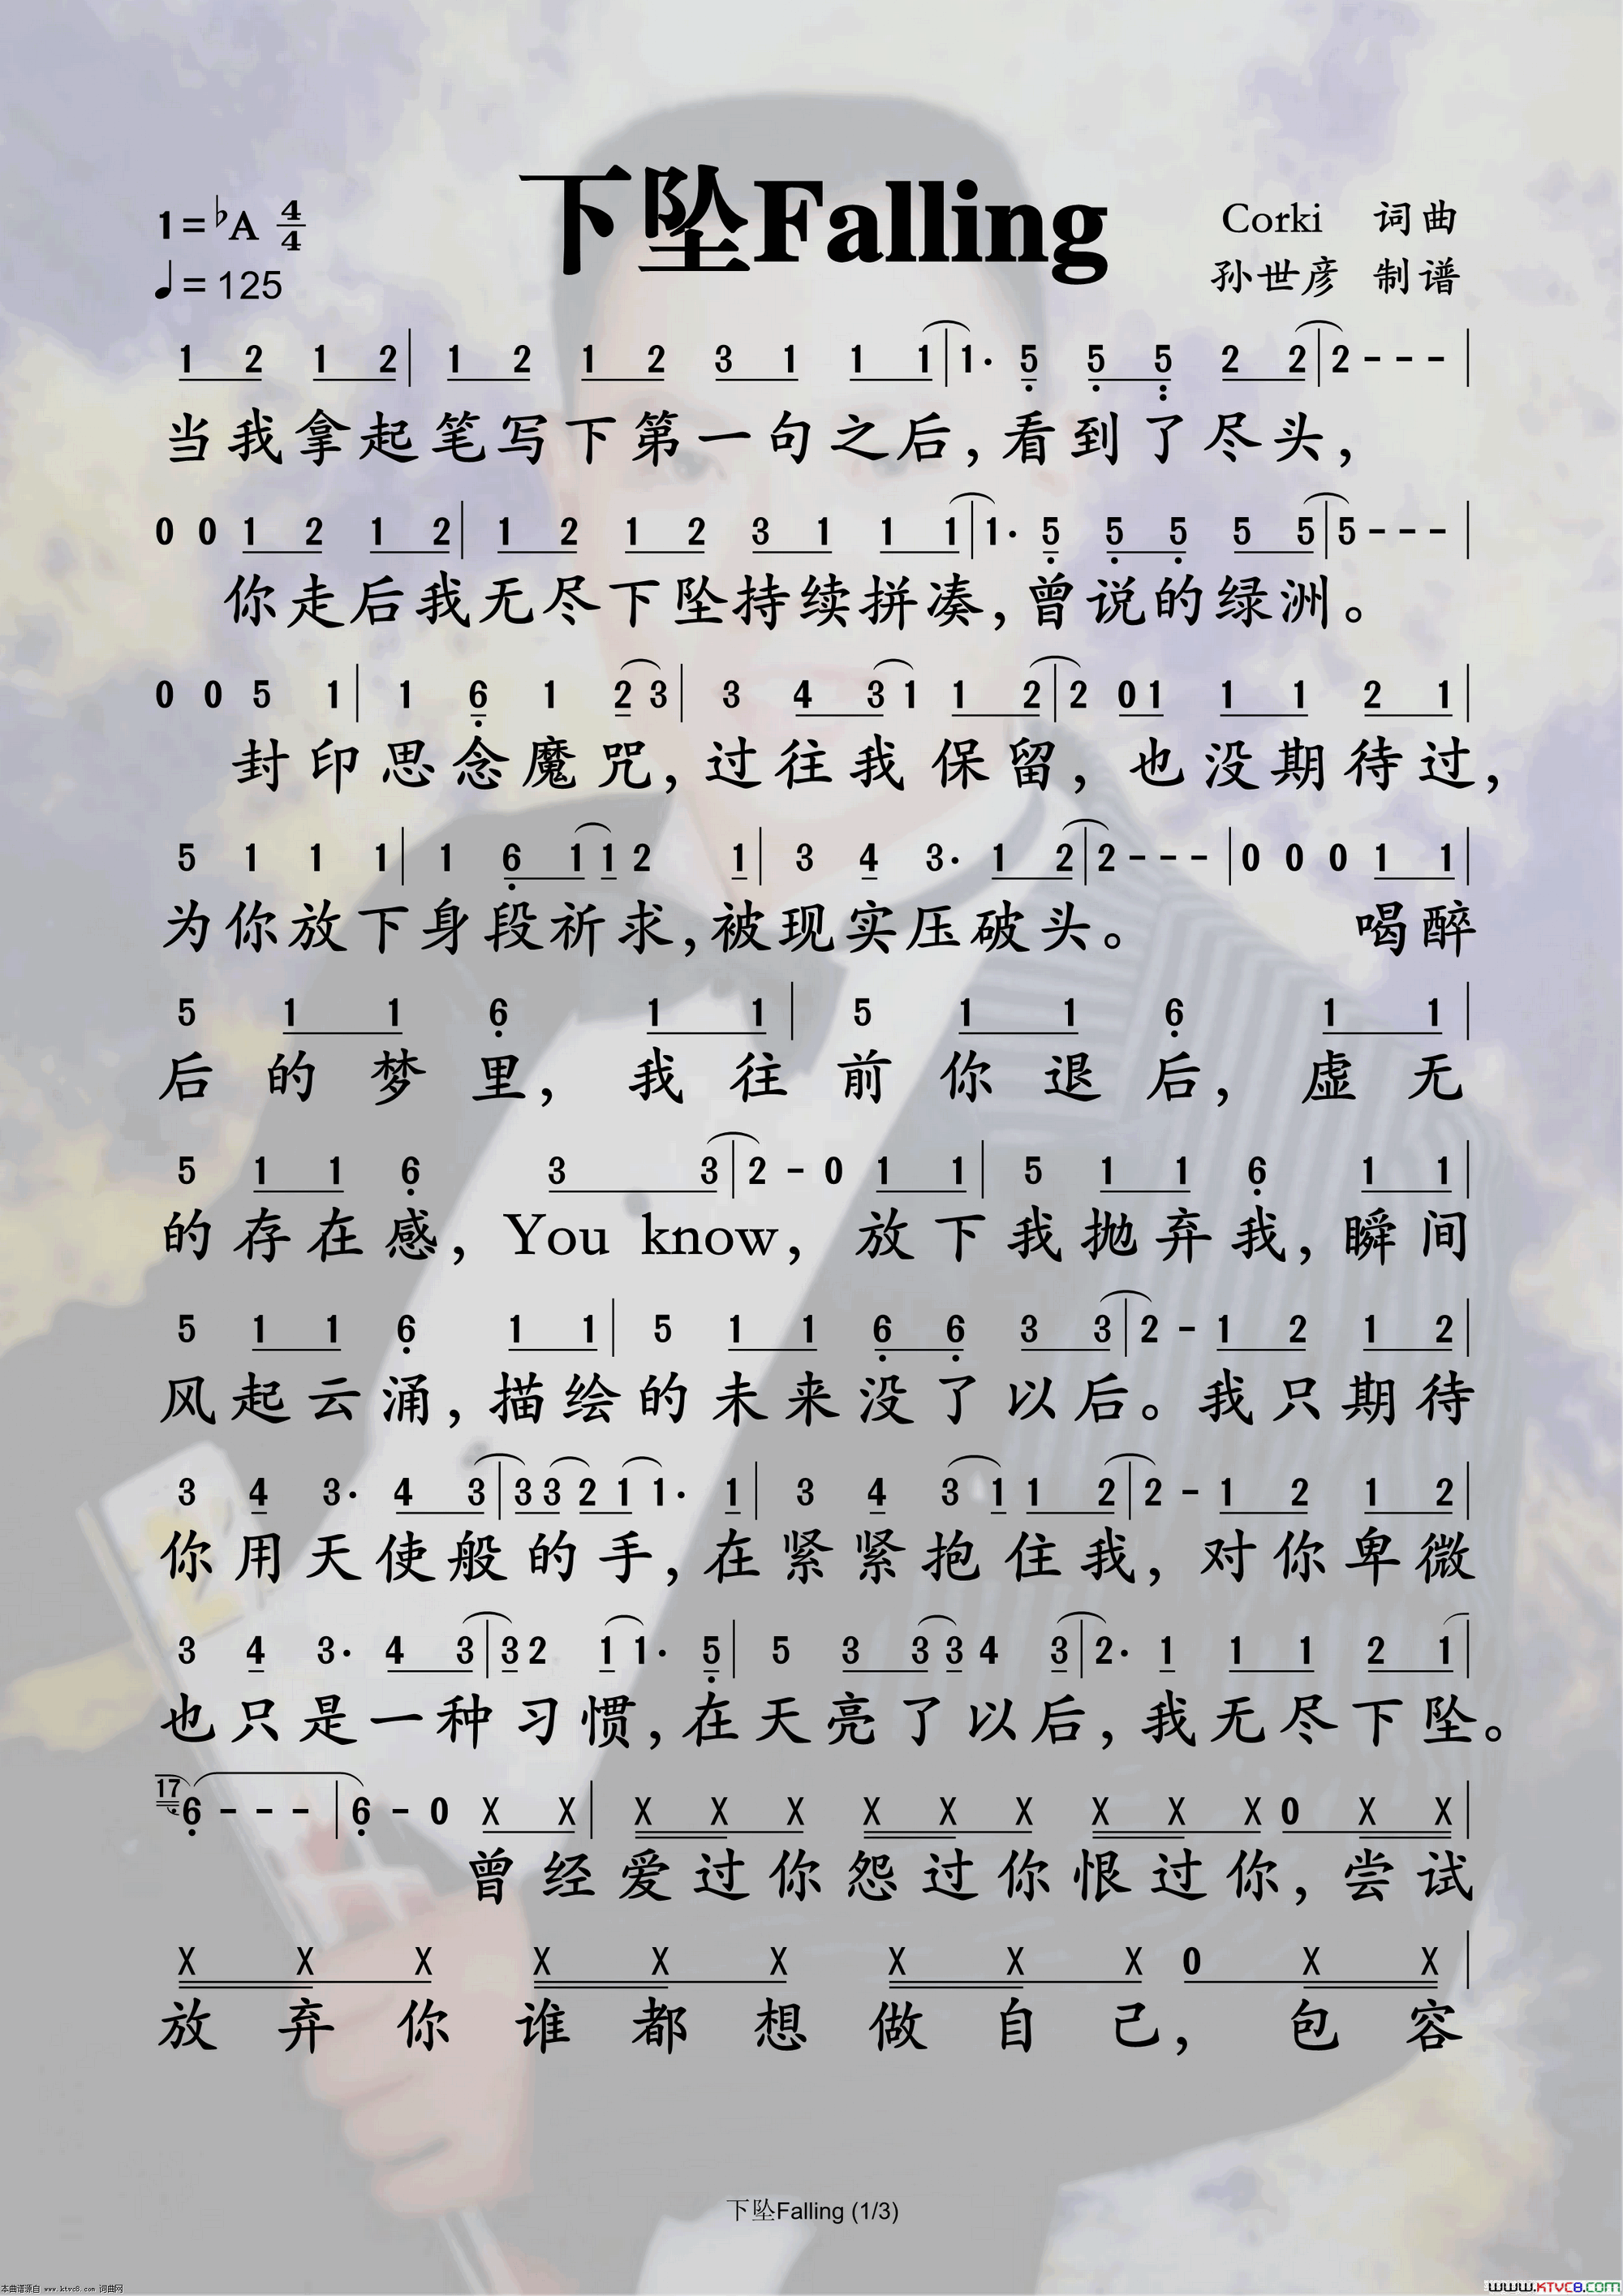 下坠Falling
1=♭A 4/4
♩= 125
Corki 词曲
孙世彦 制谱
1 2 1 2 | 1 2 1 2 3 1 1 1 | 1· 5 5 5 2 2 | 2 - - - |
当我拿起笔写下第一句之后,看到了尽头,
0 0 1 2 1 2 | 1 2 1 2 3 1 1 1 | 1· 5 5 5 5 5 | 5 - - - |
你走后我无尽下坠持续拼凑,曾说的绿洲。
0 0 5 1 | 1 6 1 2 3 | 3 4 3 1 1 2 | 2 0 1 1 1 2 1 |
封印思念魔咒,过往我保留,也没期待过,
5 1 1 1 | 1 6 1 1 2 1 | 3 4 3· 1 2 | 2 - - - | 0 0 0 1 1 |
为你放下身段祈求,被现实压破头。 喝醉
5 1 1 6 1 1 | 5 1 1 6 1 1 |
后的梦里,我往前你退后,虚无
5 1 1 6 3 3 | 2 - 0 1 1 | 5 1 1 6 1 1 |
的存在感,You know,放下我抛弃我,瞬间
5 1 1 6 1 1 | 5 1 1 6 6 3 3 | 2 - 1 2 1 2 |
风起云涌,描绘的未来没了以后。我只期待
3 4 3· 4 3 | 3 3 2 1 1· 1 | 3 4 3 1 1 2 | 2 - 1 2 1 2 |
你用天使般的手,在紧紧抱住我,对你卑微
3 4 3· 4 3 | 3 2 1 1· 5 | 5 3 3 3 4 3 | 2· 1 1 1 2 1 |
也只是一种习惯,在天亮了以后,我无尽下坠。
17 6 - - - | 6 - 0 X X | X X X X X X X X X 0 X X |
曾经爱过你怨过你恨过你,尝试
X X X X X X X X X 0 X X |
放弃你谁都想做自己,包容
下坠Falling (1/3)
本曲谱源自 www.ktvc8.com 词曲网
WWW.KTVC8.COM